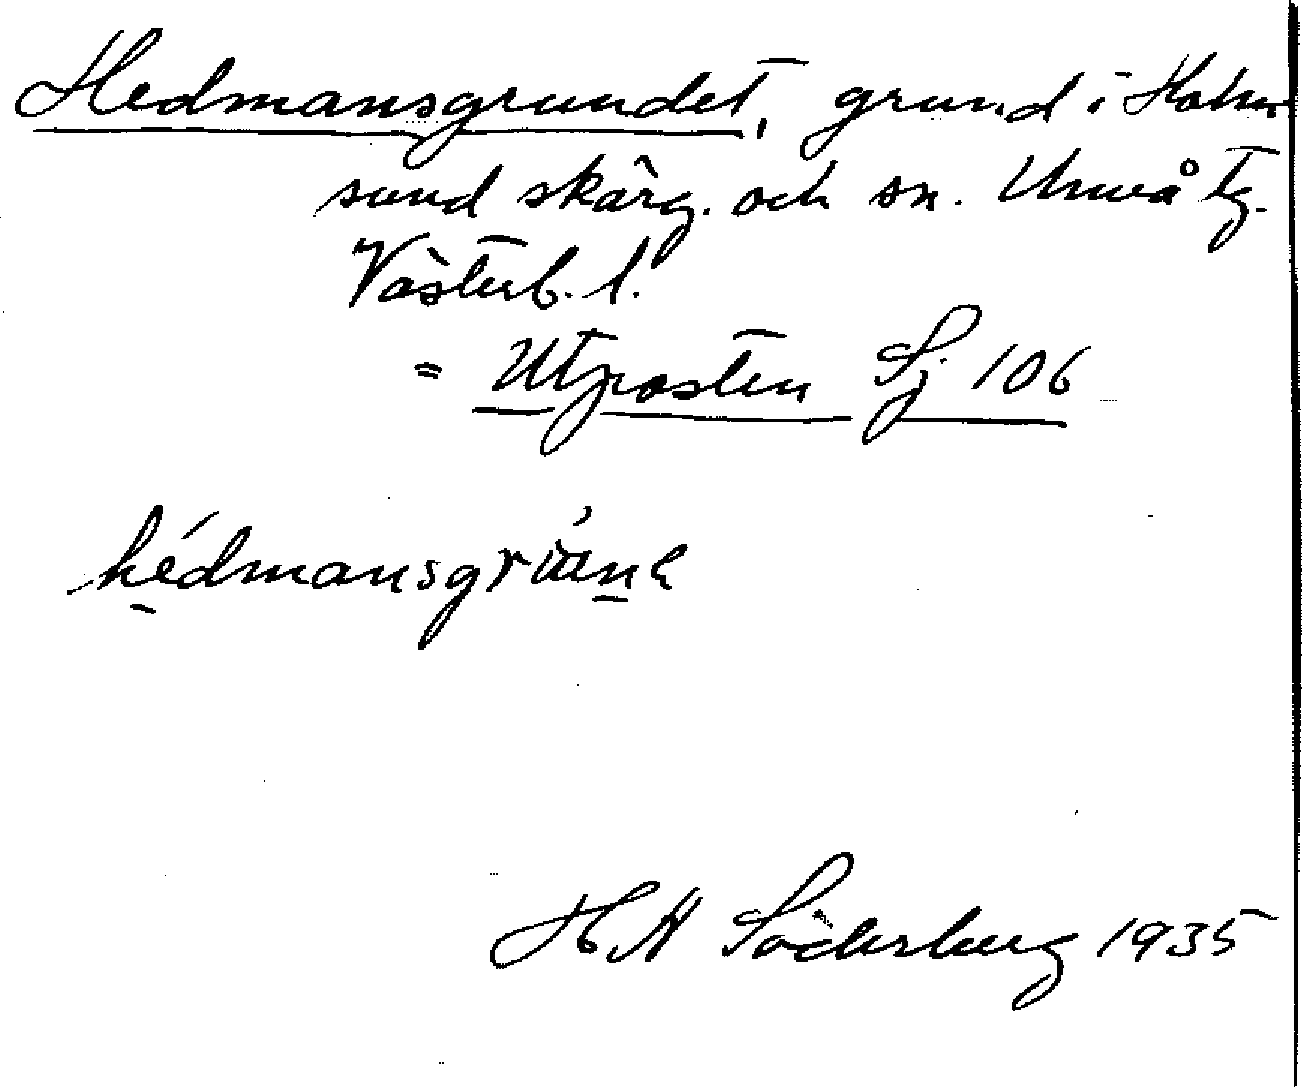 Hedmansgrundet, grund i Holm
sund skärg. och sn. Umeå tg.
Västerb. l.
= Utposten Sj 106
H H Söderberg 1935